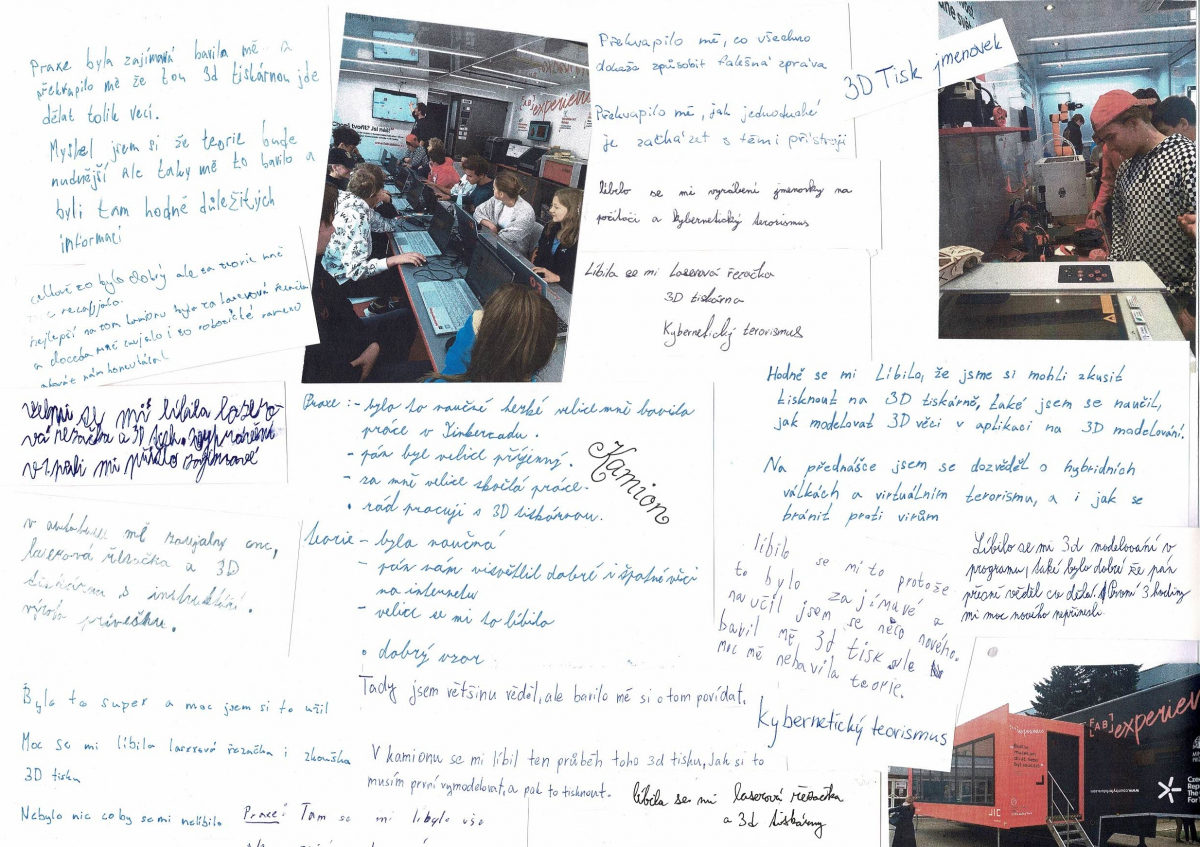 Praxe byla zajímavá bavila mě a
překvapilo mě že tou 3d tiskárnou jde
dělat tolik věcí.
Myslel jsem si že teorie bude
nudnější ale taky mě to bavilo a
byli tam hodně důležitých
informací
celkově to bylo dobrý ale ta teorie mně
nejlepší na tom kamionu byla ta laserová řezačka
a docela mně zaujalo i to robotické rameno
Velmi se mi líbila lasero-
vá řezačka a 3D
v autobusu mě zaujaly cnc,
laserová řezačka a 3D
tiskárna s instruktáží.
výroba přívěšku.
Bylo to super a moc jsem si to užil
Moc se mi líbila laserová řezačka i zkouška
3D tisku
Nebylo nic co by se mi nelíbilo
experience
Praxe: - bylo to naučné hezké velice mně bavila
práce v Tinkercadu.
- pán byl velice příjemný.
- za mně velice skvělá práce.
• rád pracuji s 3D tiskárnou.
Teorie - byla naučná
- pán nám visvětlil dobré i špatné věci
na internetu
- velice se mi to líbilo
• dobrý vzor
Kamion
Tady jsem většinu věděl, ale bavilo mě si o tom povídat.
V kamionu se mi líbil ten průběh toho 3d tisku, Jak si to
musím první vymodelovat, a pak to tisknout.
Praxe: Tam se mi líbylo vše
líbila se mi laserová řezačka
a 3d tiskárny
Překvapilo mě, co všechno
dokáže způsobit falešná zpráva
Překvapilo mě, jak jednoduché
je zacházet s těmi přístroji
líbilo se mi vyrábění jmenovky na
počítači a Kybernetický terorismus
Líbila se mi Laserová řezačka
3D tiskárna
Kybernetický terorismus
3D Tisk jmenovek
Hodně se mi Líbilo, že jsme si mohli zkusit
tisknout na 3D tiskárně, také jsem se naučil,
jak modelovat 3D věci v aplikaci na 3D modelování.
Na přednášce jsem se dozvěděl o hybridních
válkách a virtuálním terorismu, a i jak se
bránit proti virům
líbilo se mi to protože
to bylo zajímavé a
naučil jsem se něco nového.
bavil mě 3d tisk ale
moc mě nebavila teorie.
Líbilo se mi 3d modelování v
programu, také bylo dobré že pán
přesně věděl co dělá. První 3 hodiny
mi moc nového nepřinesli
Kybernetický teorismus
[FAB] experience
JIC